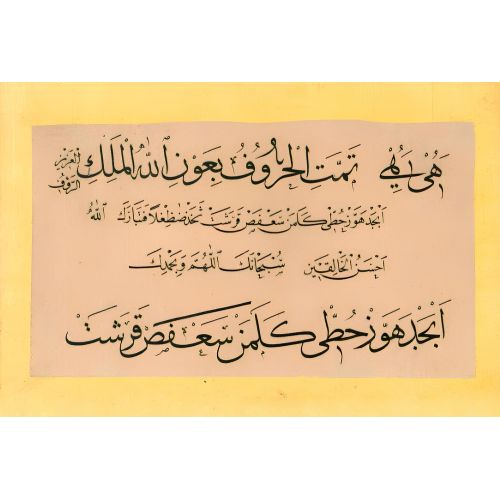 هى يهي تمت الحروف بعون الله الملك العزيز الرؤف
ابجد هوز حطي كلمن سعفص قرشت ثخذ ضظغلا فتبارك الله
احسن الخالقين سبحانك اللهم وبحمدك
ابجد هوز حطي كلمن سعفص قرشت